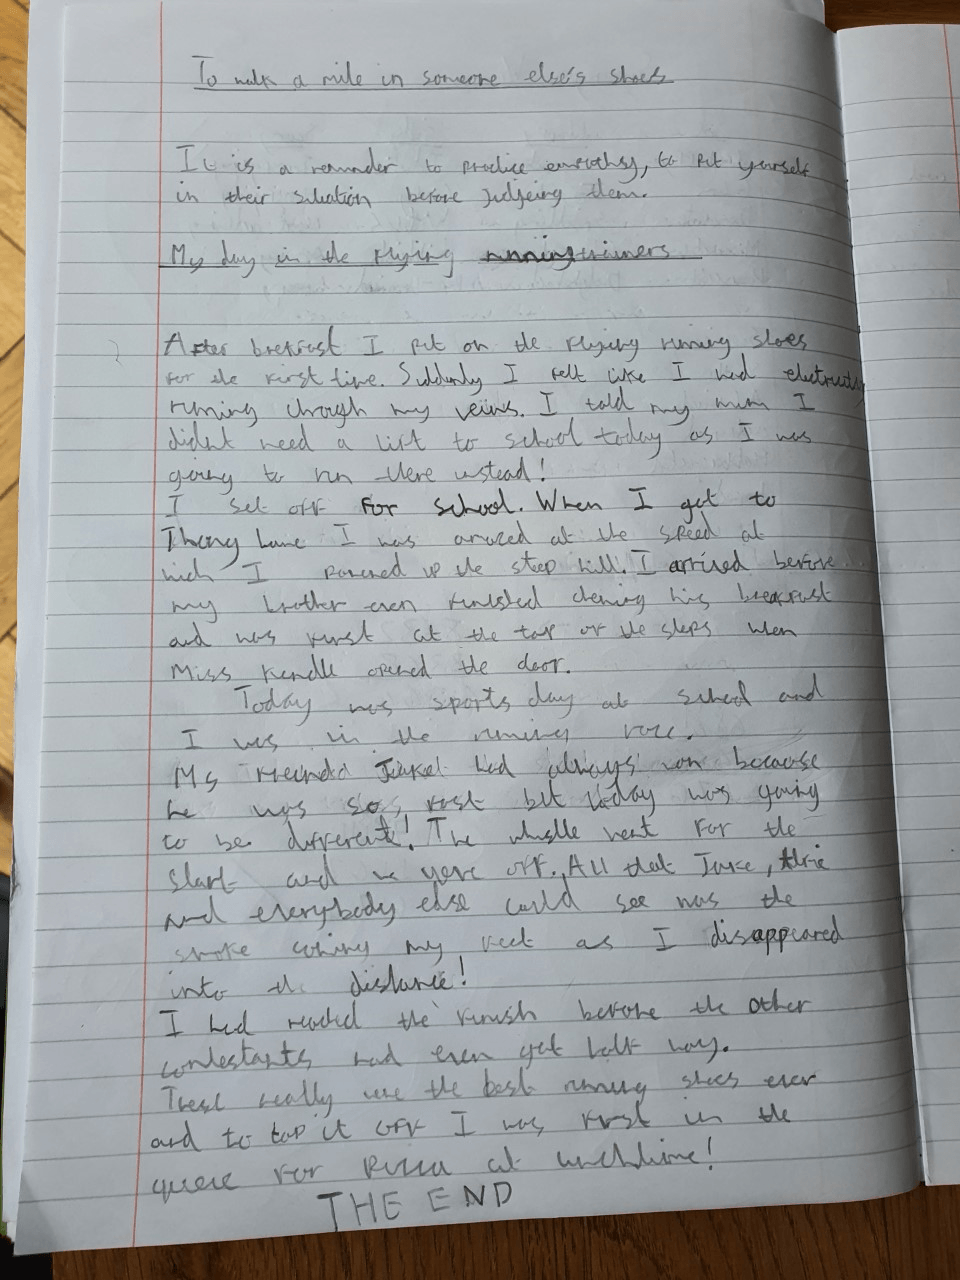 To walk a mile in someone else's shoes
It is a remander to produce empathsy, to put yourself
in their situation before judjeing them.
My day in the flying running trainers
After brekfast I put on the flying running shoes
for the first time. Suddenly I felt like I had electricity
running through my veins. I told my mum I
didn't need a lift to school today as I was
going to run there instead!
I set off for school. When I got to
Lane I was amazed at the speed at
wich I powered up the steep hill. I arrived before
my brother even finished chewing his breakfast
and was furst at the top of the steps when
Miss Kendle opened the door.
Today was sports day at school and
I was in the running race.
My Jake had always won because
he was so fast but today was going
to be different! The whistle went for the
start and we were off. All that Jake, Alfie
and everybody else could see was the
smoke coming my feet as I disappeared
into the distance!
I had reached the finish before the other
contestants had even got half way.
These really were the best running shoes ever
and to top it off I was first in the
queue for pizza at lunchtime!
THE END